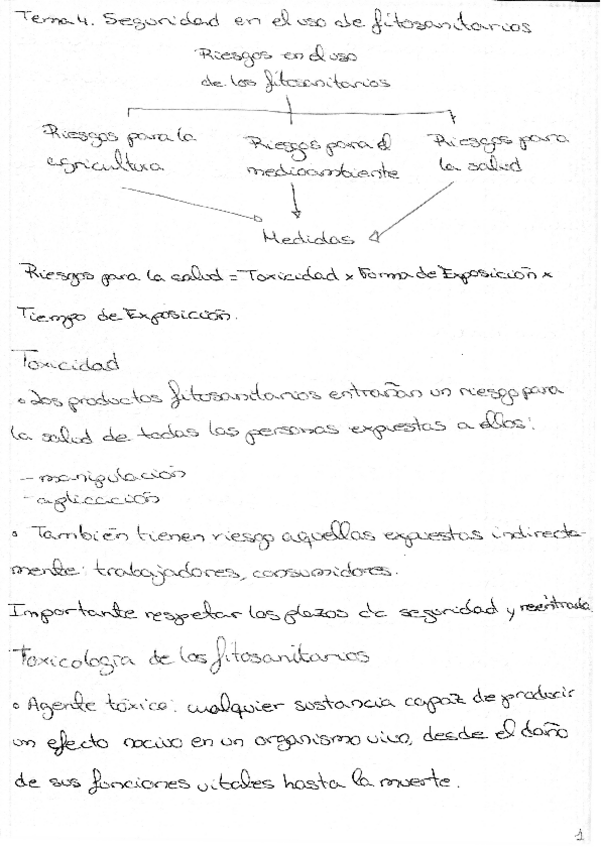 Tema 4. Seguridad en el uso de fitosanitarios
Riesgos en el uso
de los fitosanitarios
Riesgos para la
agricultura
Riesgos para el
medioambiente
Riesgos para
la salud
Medidas
Riesgos para la salud = Toxicidad x Forma de Exposición x
Tiempo de Exposición.
Toxicidad
• Los productos fitosanitarios entrañan un riesgo para
la salud de todas las personas expuestas a ellos:
- manipulación
- aplicación
• También tienen riesgo aquellas expuestas indirecta-
mente: trabajadores, consumidores.
Importante respetar los plazos de seguridad y reentrada
Toxicología de los fitosanitarios
• Agente tóxico: cualquier sustancia capaz de producir
un efecto nocivo en un organismo vivo, desde el daño
de sus funciones vitales hasta la muerte.
1